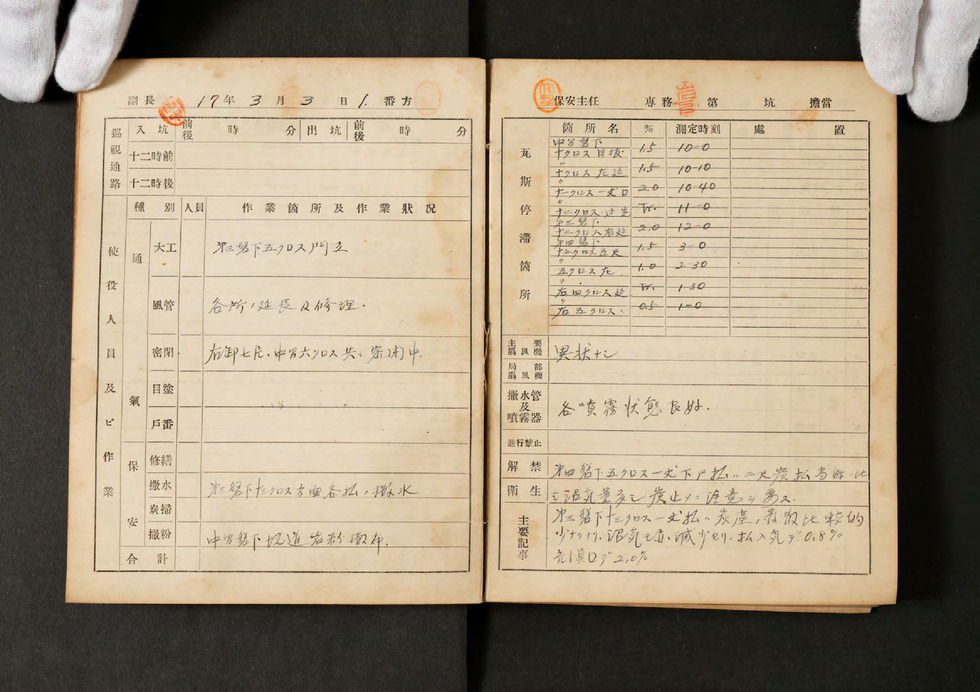 副長 17年3月3日1.番方
巡視通路
入坑 前後 時 分 出坑 前後 時 分
十二時前
十二時後
使役人員及ビ作業
種別 人員 作業箇所及作業状況
通氣
大工 第三盤下五クロス門立
風管 各所ノ延長及修理.
密閉 右卸七尺、中方六クロス共ニ密閉中.
目塗
戸番
保安
修繕
撒水 第三盤下十クロス方面各払ノ撒水
炭掃
撒粉 中方盤下坑道岩粉撒布.
合計
保安主任 専務 第 坑 擔當
瓦斯停滞箇所
箇所名 % 測定時刻 處置
中方盤下
十クロス目抜 1.5 10-0
〃
十クロス左延 1.5 10-10
〃
十一クロス一丈口 2.0 10-40
〃
十二クロス Tr. 11-0
第三盤下
十二クロス右延 2.0 12-0
第四盤下
1.5 3-0
〃
五クロス左 1.0 2-30
〃
右四クロス延 Tr. 1-30
〃
右五クロス〃 0.5 1-0
主要扇風機 異状ナシ
局部扇風機
撒水管及噴霧器 各噴霧状態良好.
通行禁止
解禁 第四盤下五クロス一丈下ノ払ハ二尺炭払当時ニ比
衛生 シ沼気量多シ炭止メニ注意ヲ要ス.
主要記事
第三盤下十二クロス一丈払ハ炭塵ノ飛散比較的
少ナリ.沼気モ亦減少セリ.払入気デ0.8%
デ2.0%